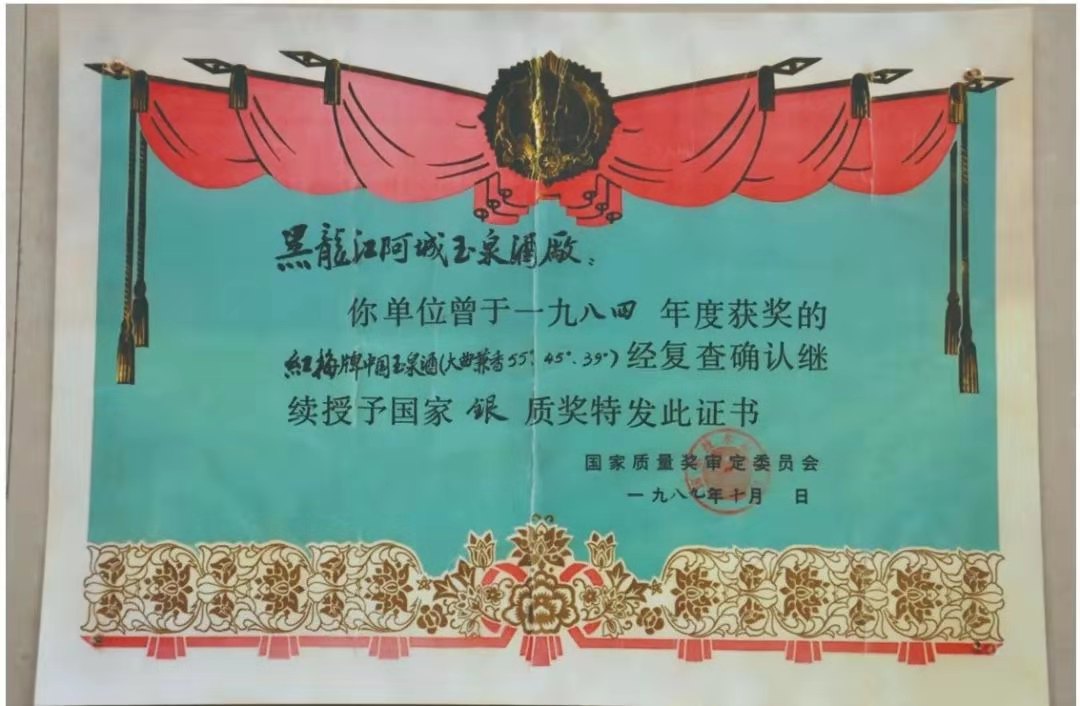 黑龍江阿城玉泉酒厰：
你单位曾于一九八四 年度获奖的
紅梅牌中国玉泉酒(大曲兼香55°、45°、39°)经复查确认继
续授予国家 银 质奖特发此证书
国家质量奖审定委员会
一九八九年十月 日